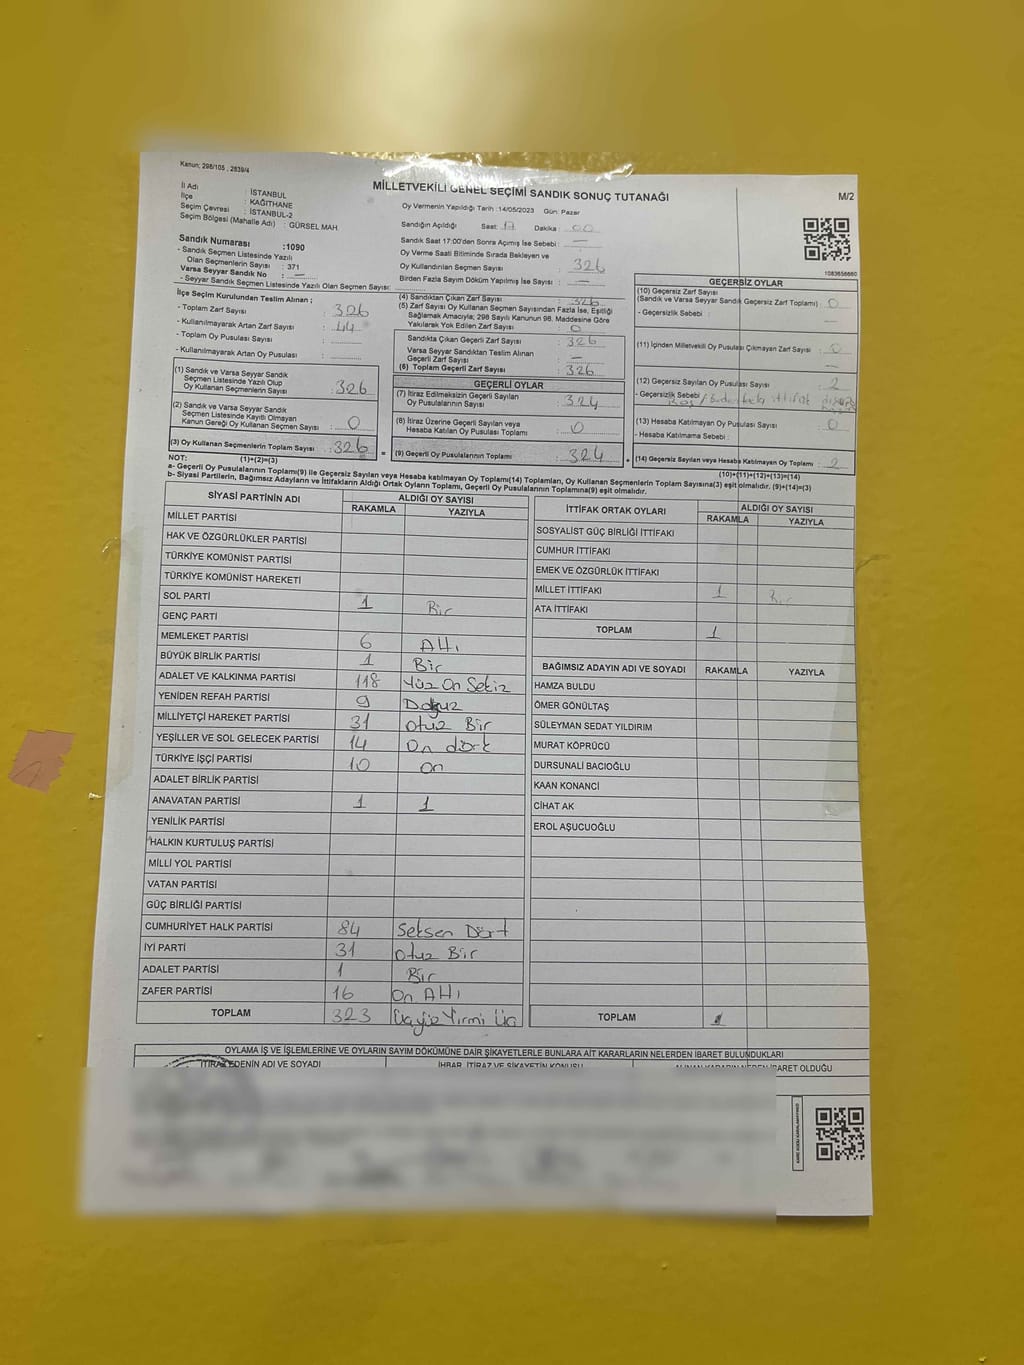 Kanun; 298/105 , 2839/4
MİLLETVEKİLİ GENEL SEÇİMİ SANDIK SONUÇ TUTANAĞI
M/2
İl Adı : İSTANBUL
İlçe : KAĞITHANE
Seçim Çevresi : İSTANBUL-2
Seçim Bölgesi (Mahalle Adı) : GÜRSEL MAH.
Oy Vermenin Yapıldığı Tarih :14/05/2023 Gün: Pazar
Sandığın Açıldığı Saat: 17 Dakika : 00
Sandık Numarası :1090
- Sandık Seçmen Listesinde Yazılı
Olan Seçmenlerin Sayısı : 371
Varsa Seyyar Sandık No : —
- Seyyar Sandık Seçmen Listesinde Yazılı Olan Seçmen Sayısı:
Sandık Saat 17:00'den Sonra Açımış İse Sebebi : —
Oy Verme Saati Bitiminde Sırada Bekleyen ve
Oy Kullandırılan Seçmen Sayısı : 326
Birden Fazla Sayım Döküm Yapılmış İse Sayısı : —
1083656660
İlçe Seçim Kurulundan Teslim Alınan ;
- Toplam Zarf Sayısı : 326
- Kullanılmayarak Artan Zarf Sayısı : 44
- Toplam Oy Pusulası Sayısı :
- Kullanılmayarak Artan Oy Pusulası :
(1) Sandık ve Varsa Seyyar Sandık
Seçmen Listesinde Yazılı Olup
Oy Kullanan Seçmenlerin Sayısı : 326
(2) Sandık ve Varsa Seyyar Sandık
Seçmen Listesinde Kayıtlı Olmayan
Kanun Gereği Oy Kullanan Seçmen Sayısı : 0
(3) Oy Kullanan Seçmenlerin Toplam Sayısı : 326
(1)+(2)=(3)
(4) Sandıktan Çıkan Zarf Sayısı : 326
(5) Zarf Sayısı Oy Kullanan Seçmen Sayısından Fazla İse, Eşitliği
Sağlamak Amacıyla; 298 Sayılı Kanunun 98. Maddesine Göre
Yakılarak Yok Edilen Zarf Sayısı : 0
Sandıkta Çıkan Geçerli Zarf Sayısı : 326
Varsa Seyyar Sandıktan Teslim Alınan
Geçerli Zarf Sayısı : —
(6) Toplam Geçerli Zarf Sayısı : 326
GEÇERLİ OYLAR
(7) İtiraz Edilmeksizin Geçerli Sayılan
Oy Pusulalarının Sayısı : 324
(8) İtiraz Üzerine Geçerli Sayılan veya
Hesaba Katılan Oy Pusulası Toplamı : 0
(9) Geçerli Oy Pusulalarının Toplamı : 324
GEÇERSİZ OYLAR
(10) Geçersiz Zarf Sayısı
(Sandık ve Varsa Seyyar Sandık Geçersiz Zarf Toplamı) : 0
- Geçersizlik Sebebi : —
(11) İçinden Milletvekili Oy Pusulası Çıkmayan Zarf Sayısı : 0
—
(12) Geçersiz Sayılan Oy Pusulası Sayısı : 2
- Geçersizlik Sebebi : Boş / Birden fazla ittifak
(13) Hesaba Katılmayan Oy Pusulası Sayısı : 0
- Hesaba Katılmama Sebebi :
(14) Geçersiz Sayılan veya Hesaba Katılmayan Oy Toplamı : 2
(10)+(11)+(12)+(13)=(14)
NOT:
a- Geçerli Oy Pusulalarının Toplamı(9) ile Geçersiz Sayılan veya Hesaba katılmayan Oy Toplamı(14) Toplamları, Oy Kullanan Seçmenlerin Toplam Sayısına(3) eşit olmalıdır. (9)+(14)=(3)
b- Siyasi Partilerin, Bağımsız Adayların ve İttifakların Aldığı Ortak Oyların Toplamı, Geçerli Oy Pusulalarının Toplamına(9) eşit olmalıdır.
SİYASİ PARTİNİN ADI ALDIĞI OY SAYISI
RAKAMLA YAZIYLA
MİLLET PARTİSİ
HAK VE ÖZGÜRLÜKLER PARTİSİ
TÜRKİYE KOMÜNİST PARTİSİ
TÜRKİYE KOMÜNİST HAREKETİ
SOL PARTİ 1 Bir
GENÇ PARTİ
MEMLEKET PARTİSİ 6 Altı
BÜYÜK BİRLİK PARTİSİ 1 Bir
ADALET VE KALKINMA PARTİSİ 118 Yüz On Sekiz
YENİDEN REFAH PARTİSİ 9 Dokuz
MİLLİYETÇİ HAREKET PARTİSİ 31 Otuz Bir
YEŞİLLER VE SOL GELECEK PARTİSİ 14 On dört
TÜRKİYE İŞÇİ PARTİSİ 10 On
ADALET BİRLİK PARTİSİ
ANAVATAN PARTİSİ 1 1
YENİLİK PARTİSİ
HALKIN KURTULUŞ PARTİSİ
MİLLİ YOL PARTİSİ
VATAN PARTİSİ
GÜÇ BİRLİĞİ PARTİSİ
CUMHURİYET HALK PARTİSİ 84 Seksen Dört
İYİ PARTİ 31 Otuz Bir
ADALET PARTİSİ 1 Bir
ZAFER PARTİSİ 16 On Altı
TOPLAM 323 Üçyüz Yirmi Üç
İTTİFAK ORTAK OYLARI ALDIĞI OY SAYISI
RAKAMLA YAZIYLA
SOSYALİST GÜÇ BİRLİĞİ İTTİFAKI
CUMHUR İTTİFAKI
EMEK VE ÖZGÜRLÜK İTTİFAKI
MİLLET İTTİFAKI 1 Bir
ATA İTTİFAKI
TOPLAM 1
BAĞIMSIZ ADAYIN ADI VE SOYADI RAKAMLA YAZIYLA
HAMZA BULDU
ÖMER GÖNÜLTAŞ
SÜLEYMAN SEDAT YILDIRIM
MURAT KÖPRÜCÜ
DURSUNALİ BACIOĞLU
KAAN KONANCİ
CİHAT AK
EROL AŞUCUOĞLU
TOPLAM 1
OYLAMA İŞ VE İŞLEMLERİNE VE OYLARIN SAYIM DÖKÜMÜNE DAİR ŞİKAYETLERLE BUNLARA AİT KARARLARIN NELERDEN İBARET BULUNDUKLARI
İTİRAZ EDENİN ADI VE SOYADI İHBAR, İTİRAZ VE ŞİKAYETİN KONUSU ALINAN KARARIN NEDEN İBARET OLDUĞU